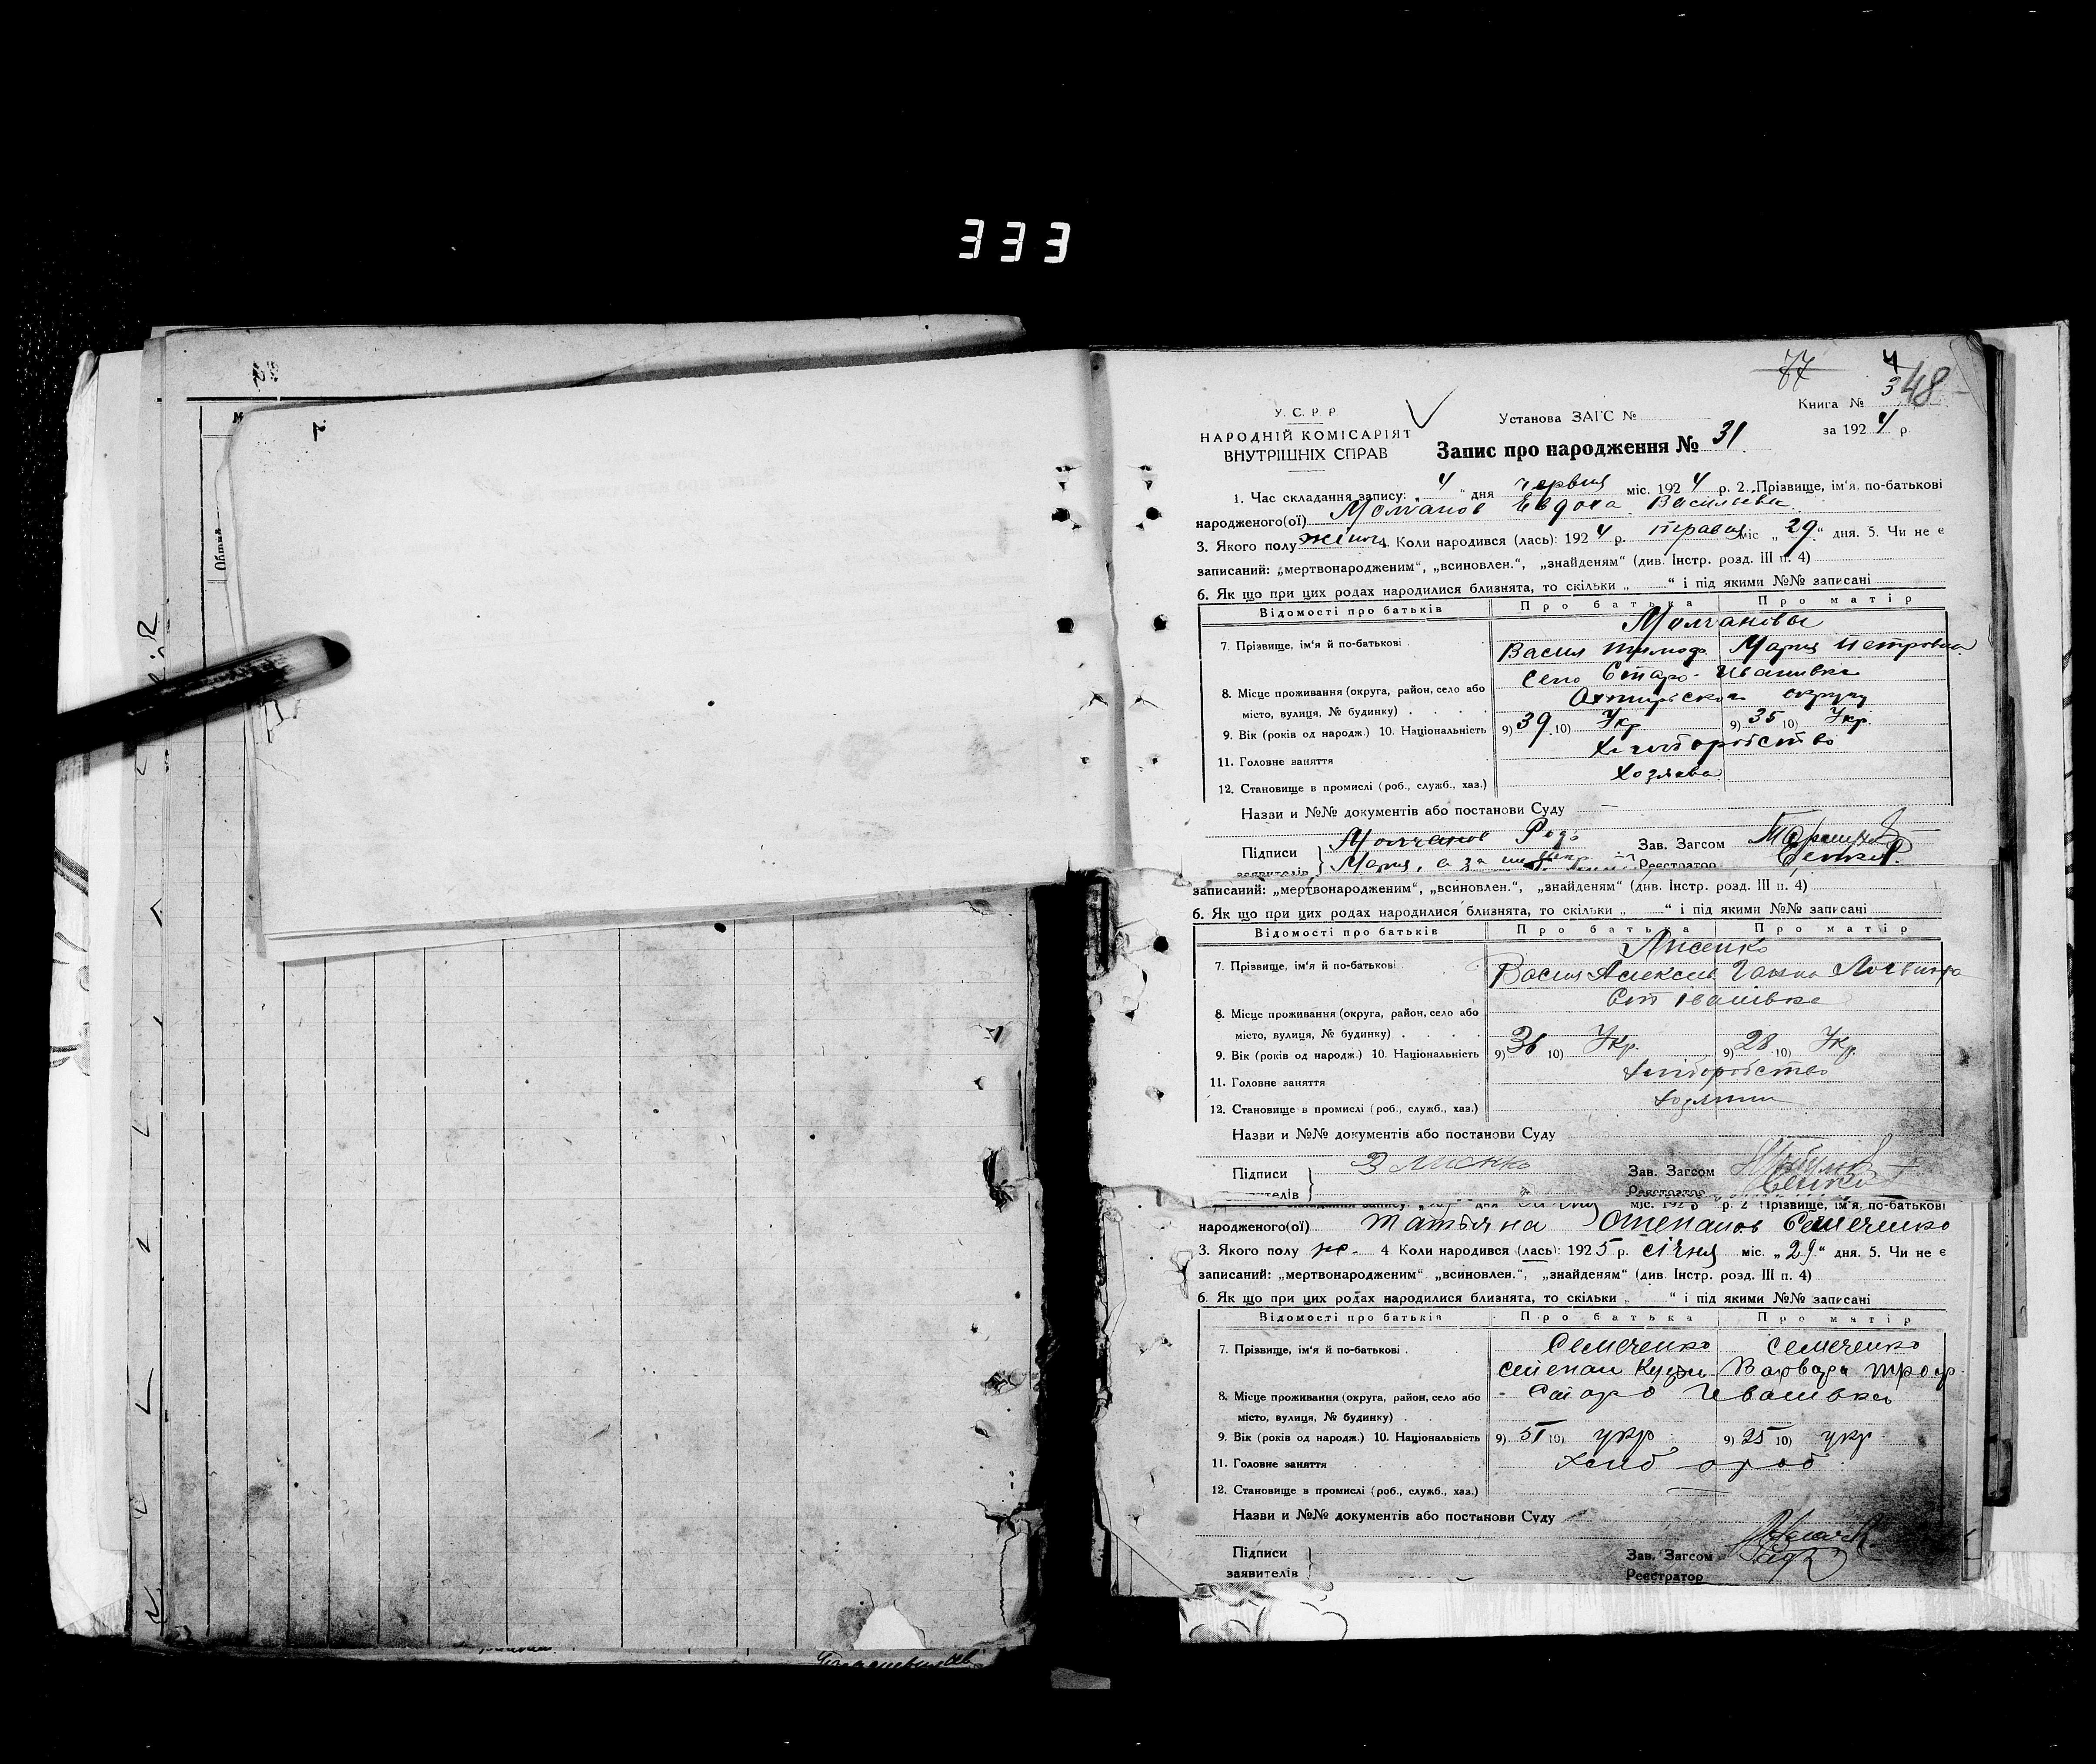 333
77
4
3 48
У. С. Р. Р
НАРОДНІЙ КОМІСАРІЯТ
ВНУТРІШНІХ СПРАВ
Установа ЗАГС №
Книга №
за 1924 р.
Запис про народження № 31
1. Час складання запису: „ 4 " дня червня міс. 1924 р. 2. Прізвище, ім'я, по-батькові
народженого(ої) Молчанов Евдока Васильевна
3. Якого полу жіноч. 4. Коли народився (лась): 1924 р. травня міс „ 29 " дня. 5. Чи не є
записаний: „мертвонародженим", „всиновлен.", „знайденям" (див. Інстр. розд. III п. 4)
6. Як що при цих родах народилися близнята, то скільки „ " і під якими №№ записані
Відомості про батьків Про батька Про матір
Молчановы
7. Прізвище, ім'я й по-батькові
Васил Тимоф. Мария Петровна
село Старо-Ивановка
8. Місце проживання (округа, район, село або
місто, вулиця, № будинку)
Охтирської округи
9. Вік (років од народж.) 10. Національність 9) 39 10) Укр 9) 35 10) Укр.
11. Головне заняття
хліборобство
12. Становище в промислі (роб., служб., хаз.)
хозяева
Назви и №№ документів або постанови Суду
Підписи Молчанов
заявителів Мария, а за
Зав. Загсом
Реєстратор
записаний: „мертвонародженим", „всиновлен.", „знайденям" (див. Інстр. розд. III п. 4)
6. Як що при цих родах народилися близнята, то скільки „ " і під якими №№ записані
Відомості про батьків Про батька Про матір
Лисенко
7. Прізвище, ім'я й по-батькові
Васил Алексеев Ганна
Ст Іванівка
8. Місце проживання (округа, район, село або
місто, вулиця, № будинку)
9. Вік (років од народж.) 10. Національність 9) 36 10) Укр. 9) 28 10) Укр.
11. Головне заняття
хліборобство
12. Становище в промислі (роб., служб., хаз.)
Назви и №№ документів або постанови Суду
Підписи
Зав. Загсом
Реєстратор
р. 2 Прізвище, ім'я, по-батькові
народженого(ої) Татьяна Степанов Семеченко
3. Якого полу ж. 4 Коли народився (лась): 1925 р. січня міс. „ 29 " дня. 5. Чи не є
записаний: „мертвонародженим" „всиновлен.", „знайденям" (див. Інстр. розд. III п. 4)
6. Як що при цих родах народилися близнята, то скільки „ " і під якими №№ записані
Відомості про батьків Про батька Про матір
Семеченко Семеченко
7. Прізвище, ім'я й по-батькові
Степан Кузьм Варвара Троф
Старо Ивановка
8. Місце проживання (округа, район, село або
місто, вулиця, № будинку)
9. Вік (років од народж.) 10. Національність 9) 51 10) укр. 9) 25 10) укр.
11. Головне заняття
хлібороб
12. Становище в промислі (роб., служб., хаз.)
Назви и №№ документів або постанови Суду
Підписи
заявителів
Зав. Загсом
Реєстратор